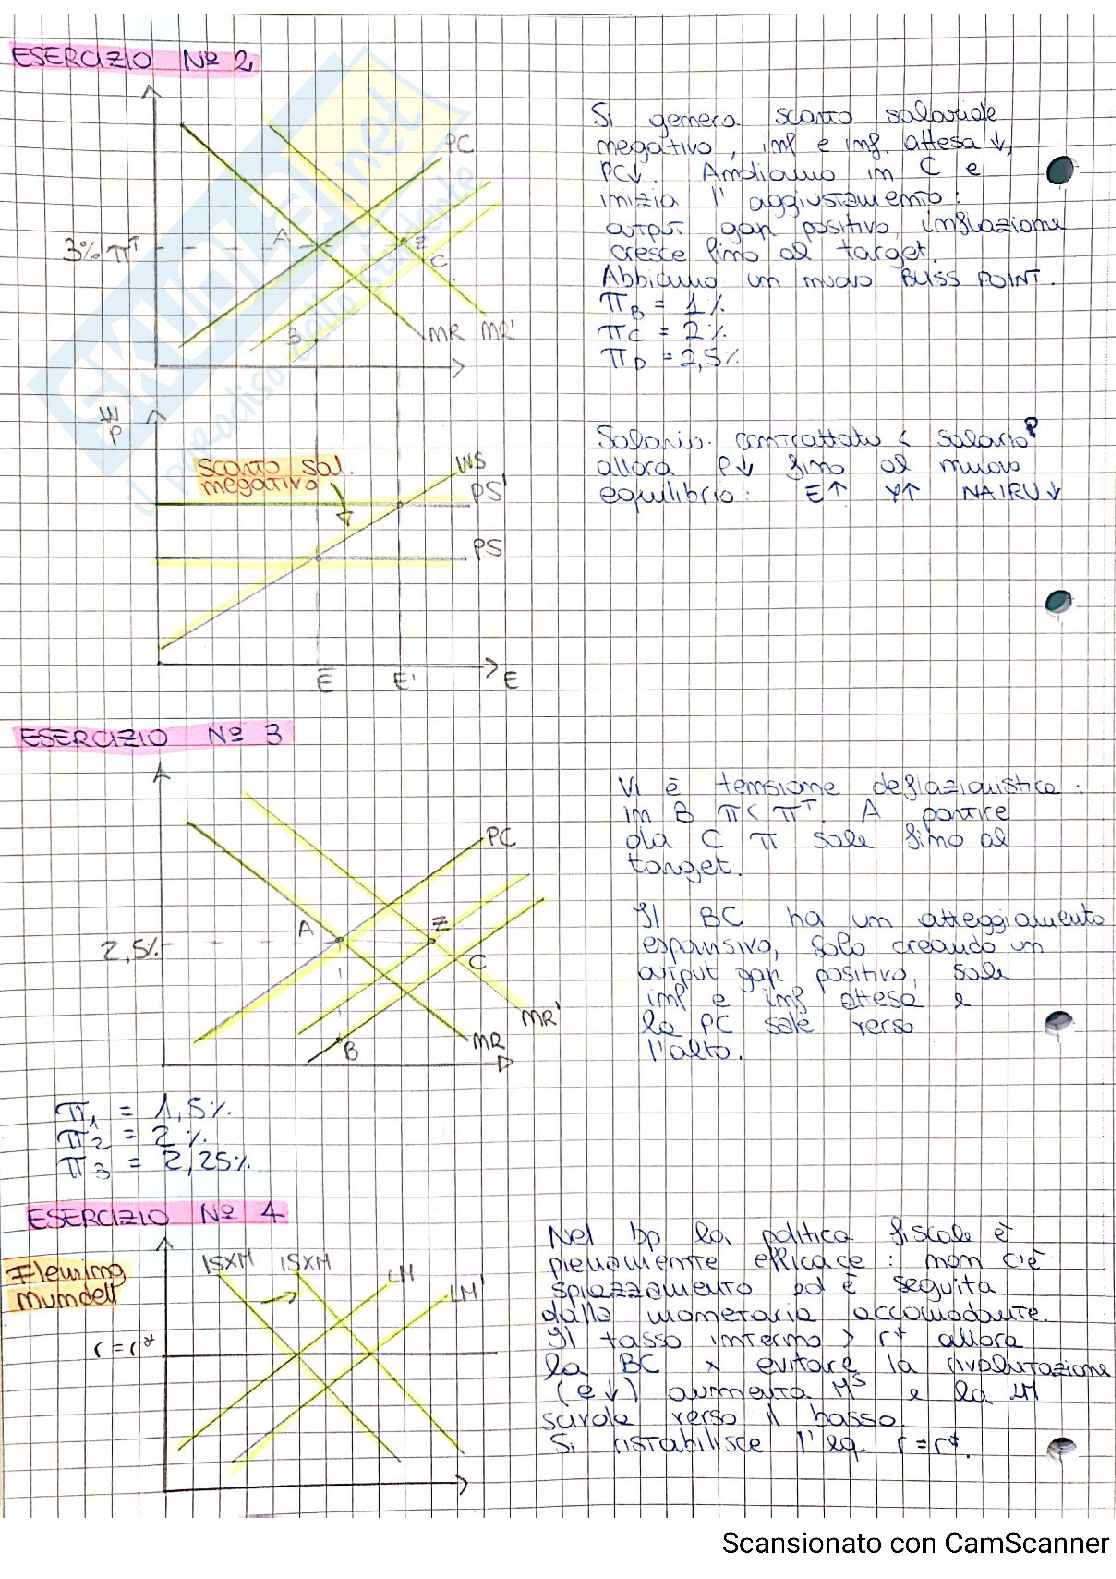 ESERCIZIO Nº 2
PC
3% πᵀ
A
Z
C
B
MR MR'
Si genera scarto salariale
negativo, inf e inf. attesa ↓,
PC↓. Andiamo in C e
inizia l'aggiustamento:
output gap positivo, inflazione
cresce fino al target.
Abbiamo un nuovo BLISS POINT.
π_B = 1%
π_C = 2%
π_D = 2,5%
W/P
scarto sal.
negativo
WS
PS'
PS
E̅ E' E
Salario contrattato < salario
allora P↓ fino al nuovo
equilibrio: E↑ Y↑ NAIRU↓
ESERCIZIO Nº 3
PC
A
Z
2,5%
C
MR'
MR
B
Vi è tensione deflazionistica:
in B π<πᵀ. A partire
da C π sale fino al
target.
Il BC ha un atteggiamento
espansivo, solo creando un
output gap positivo, sale
inf e inf attesa e
la PC sale verso
l'alto.
π₁ = 1,5%
π₂ = 2%
π₃ = 2,25%
ESERCIZIO Nº 4
Fleming
Mundell
ISXM ISXM LM
LM'
r=r*
Nel bp la politica fiscale è
pienamente efficace: non c'è
spiazzamento ed è seguita
dalla monetaria accomodante.
Il tasso interno > r* allora
la BC x evitare la rivalutazione
(e↓) aumenta Mˢ e la LM
scivola verso il basso.
Si ristabilisce l'eq. r=r*.
SKUOLA.net
il paradiso dello studente
Scansionato con CamScanner